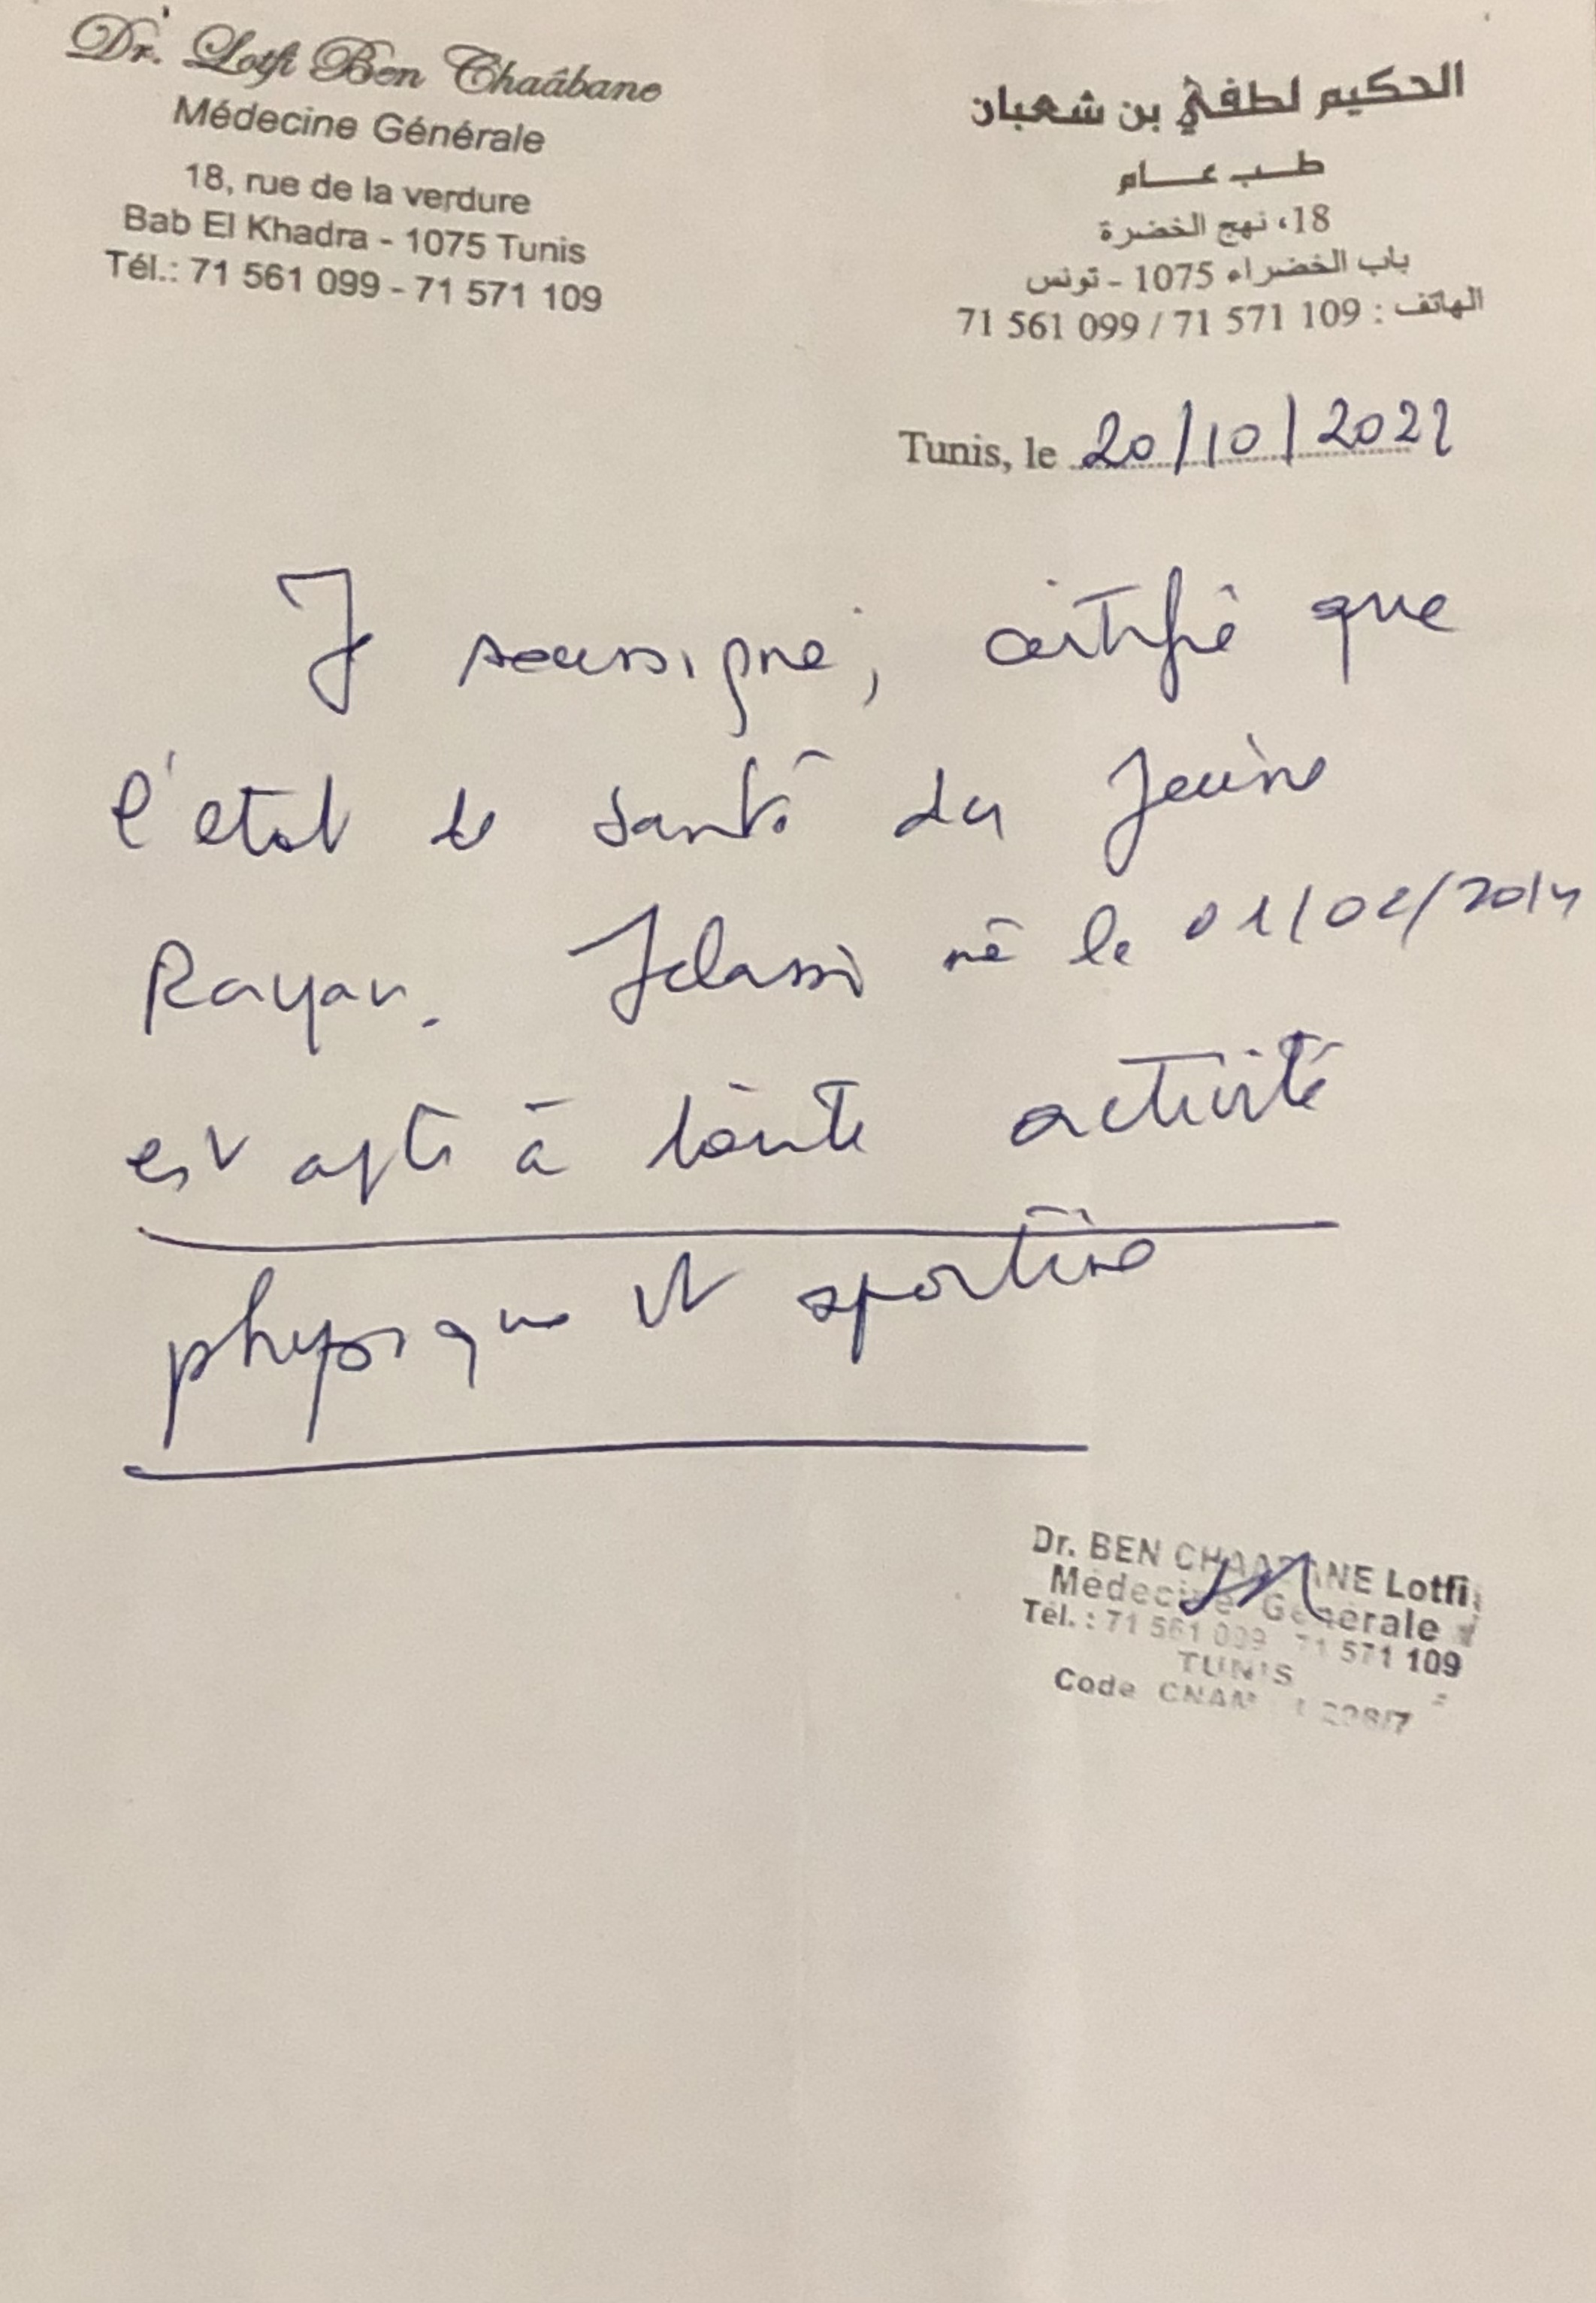 Dr. Lotfi Ben Chaâbane
Médecine Générale
18, rue de la verdure
Bab El Khadra - 1075 Tunis
Tél.: 71 561 099 - 71 571 109
الحكيم لطفي بن شعبان
طب عام
18، نهج الخضرة
باب الخضراء 1075 - تونس
الهاتف : 71 561 099 / 71 571 109
Tunis, le 20/10/2022
Je soussigné, certifie que
l'état de santé du Jeune
Rayan Jelassi né le 01/02/2014
est apte à toute activité
physique et sportive
Dr. BEN CHAABANE Lotfi
Médecine Générale
Tél. : 71 561 099 71 571 109
TUNIS
Code CNAM